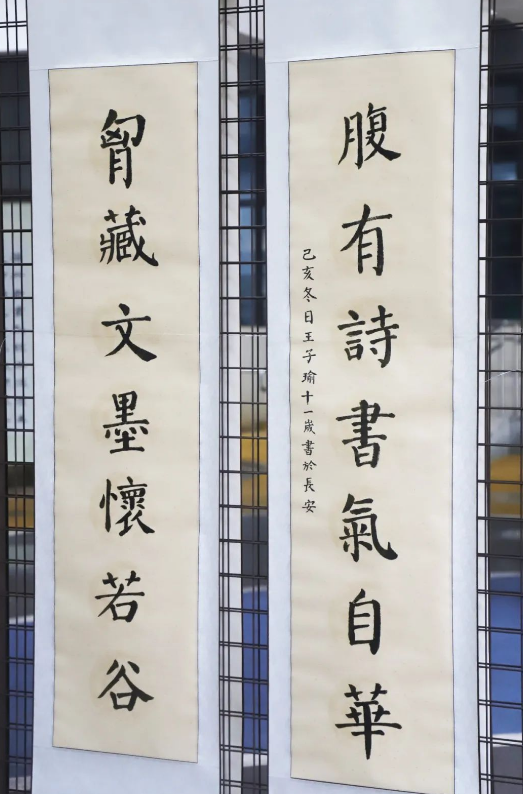 腹有詩書氣自華
己亥冬日王子瑜十一歲書於長安
胷藏文墨懷若谷